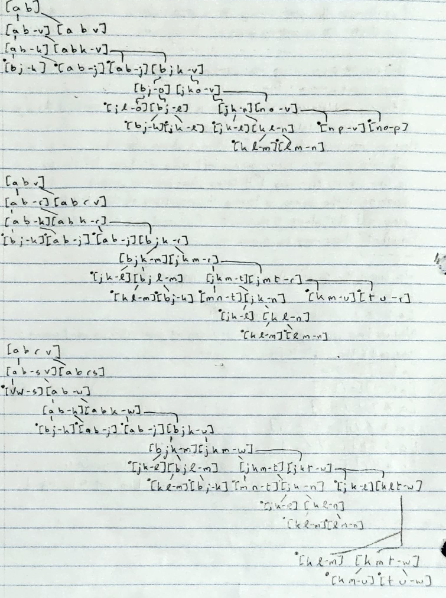 [ab]
[ab-v] [abv]
[ab-k][abk-v]
*[bj-k] *[ab-j] *[ab-j] [bjk-v]
[bj-o] [jko-v]
*[jl-o] [bj-l] [jk-n] [no-v]
*[bj-k] *[jk-l] *[jk-l] [kl-n] *[np-v] *[no-p]
*[kl-m] *[lm-n]
[abv]
[ab-r] [abrv]
[ab-k][abk-r]
*[bj-k] *[ab-j] *[ab-j] [bjk-r]
[bjk-m] [jkm-r]
*[jk-l] [bjl-m] [jkm-t] [jmt-r]
*[kl-m] *[bj-k] *[mn-t] [jk-n] *[km-u] *[tu-r]
*[jk-l] [kl-n]
*[kl-m] *[lm-n]
[abrv]
[ab-sv] [abrs]
*[vw-s] [ab-w]
[ab-k] [abk-w]
*[bj-k] *[ab-j] *[ab-j] [bjk-w]
[bjk-m] [jkm-w]
*[jk-l] [bjl-m] [jkm-t] [jkt-w]
*[kl-m] *[bj-k] *[mn-t] [jk-n] *[jk-l] [klt-w]
*[jk-l] [kl-n]
*[kl-m] *[lm-n]
*[kl-m] [kmt-w]
*[km-u] *[tu-w]